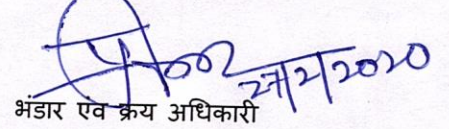 27/2/2020
भंडार एवं क्रय अधिकारी